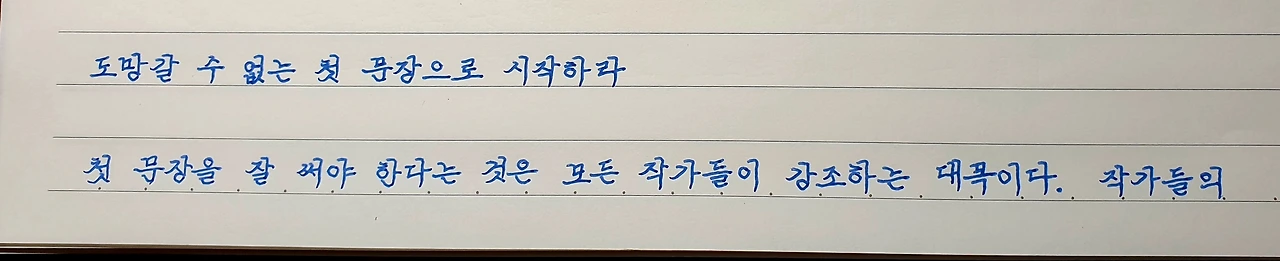 도망갈 수 없는 첫 문장으로 시작하라
첫 문장을 잘 써야 한다는 것은 모든 작가들이 강조하는 대목이다. 작가들의